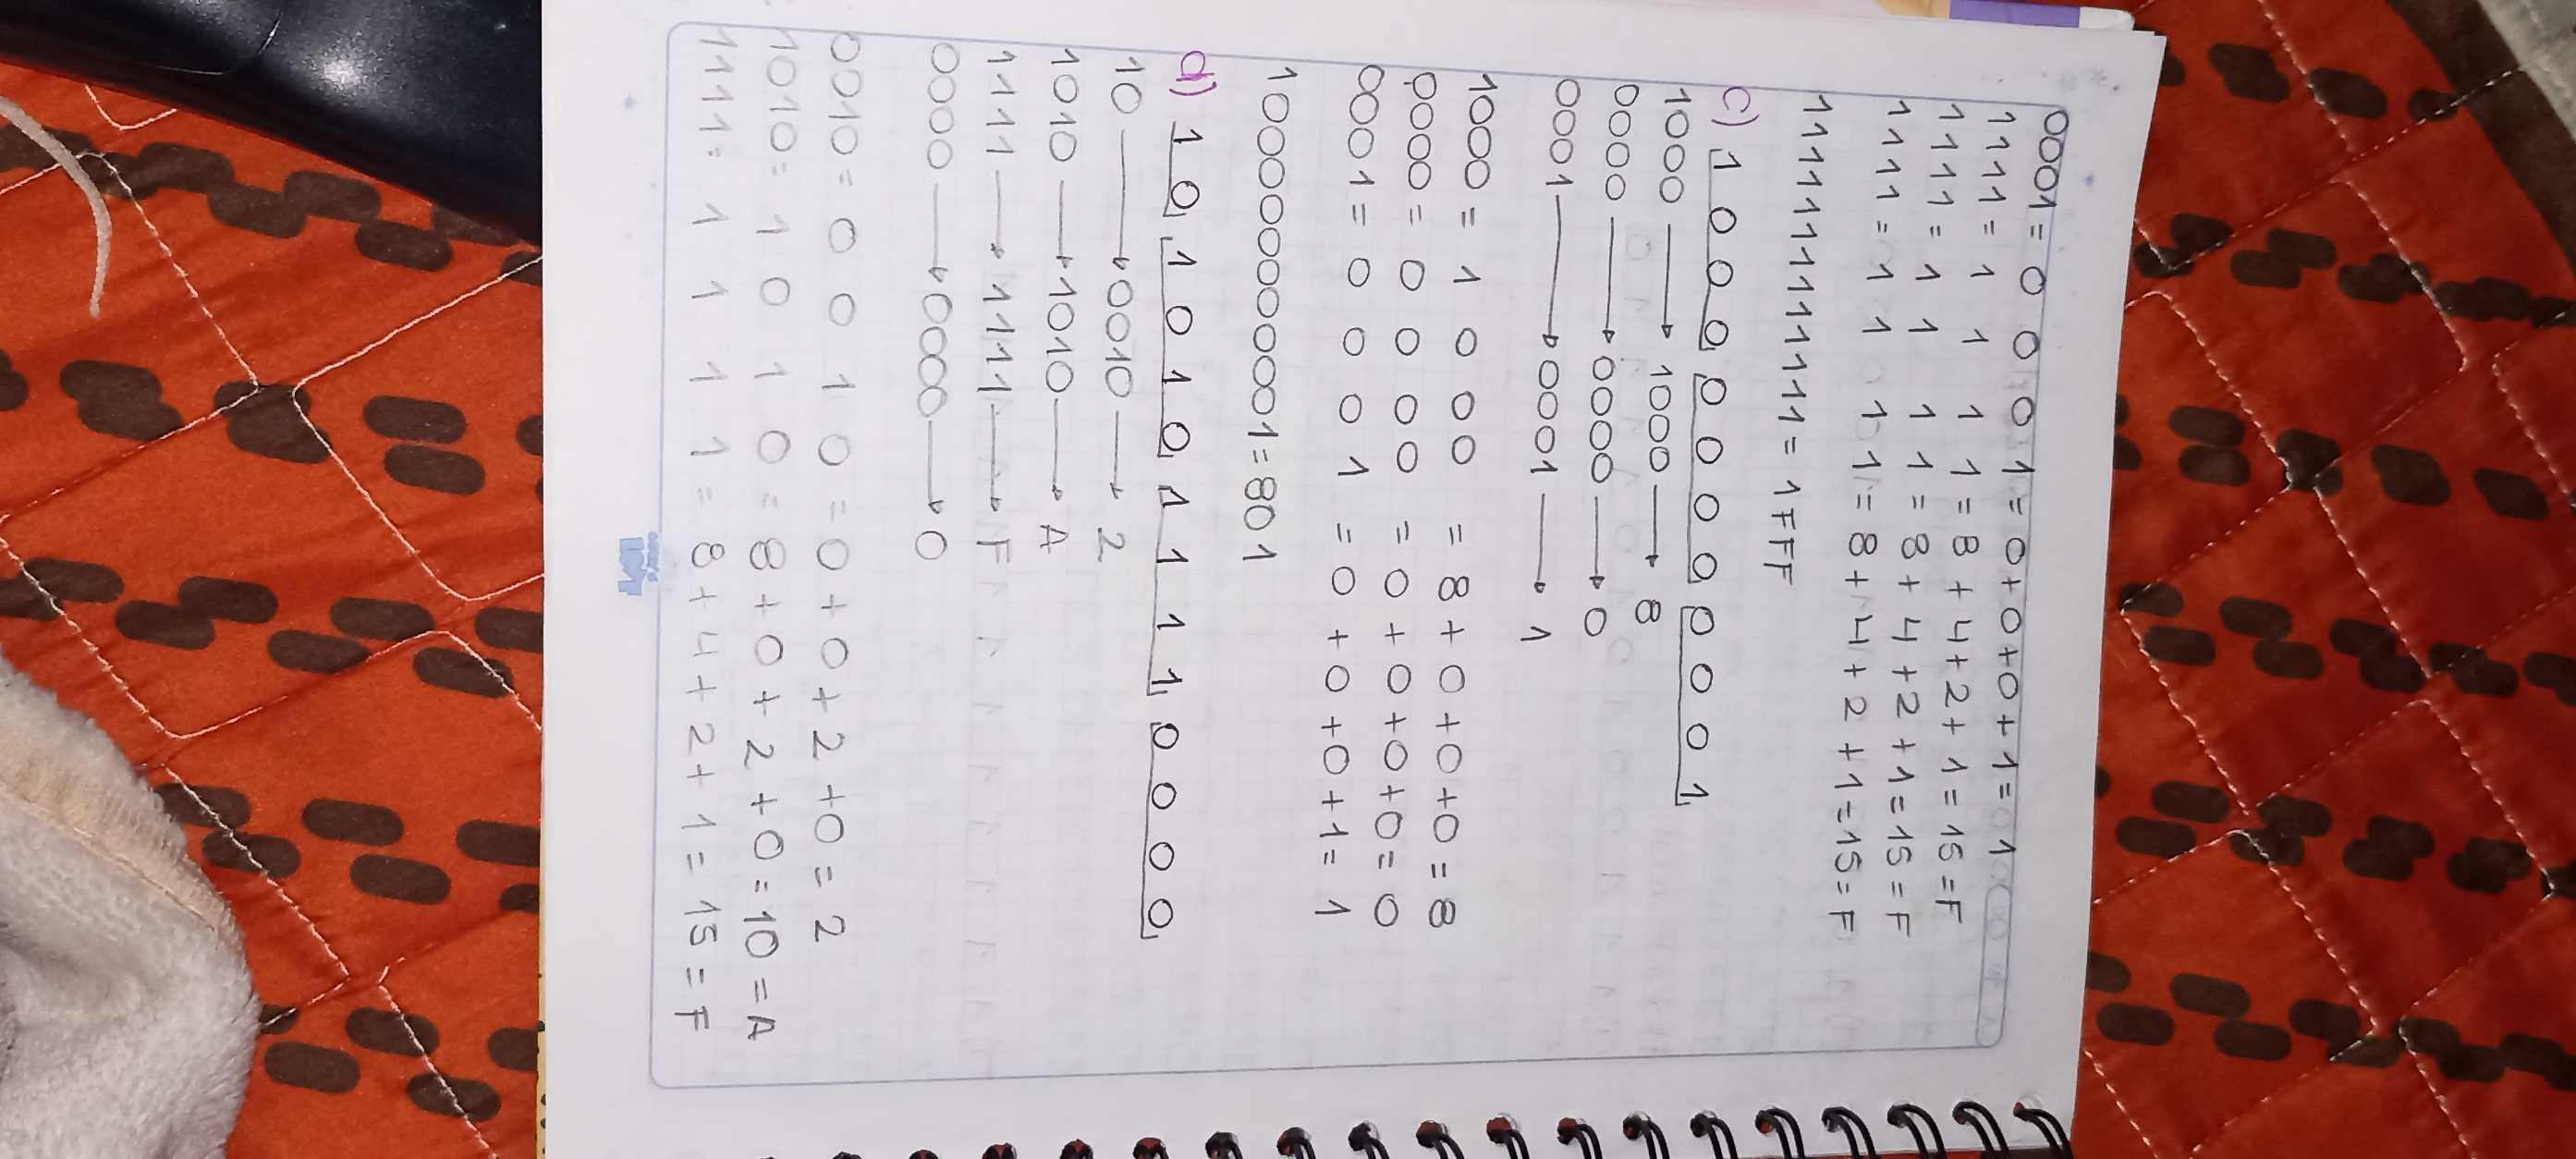 0001 = 0 0 0 1 = 0+0+0+1= 1
1111 = 1 1 1 1 = 8+4+2+1=15=F
1111 = 1 1 1 1 = 8+4+2+1=15=F
1111 = 1 1 1 1 = 8+4+2+1=15=F
1111111111111 = 1FFF
c) 1 0 0 0 0 0 0 0 0 0 0 1
1000 → 1000 → 8
0000 → 0000 → 0
0001 → 0001 → 1
1000 = 1 0 0 0 = 8+0+0+0=8
0000 = 0 0 0 0 = 0+0+0+0=0
0001 = 0 0 0 1 = 0+0+0+1=1
100000000001=801
d) 1 0 1 0 1 0 1 1 1 1 0 0 0 0
10 → 0010 → 2
1010 → 1010 → A
1111 → 1111 → F
0000 → 0000 → 0
0010 = 0 0 1 0 = 0+0+2+0=2
1010 = 1 0 1 0 = 8+0+2+0=10=A
1111 = 1 1 1 1 = 8+4+2+1=15=F